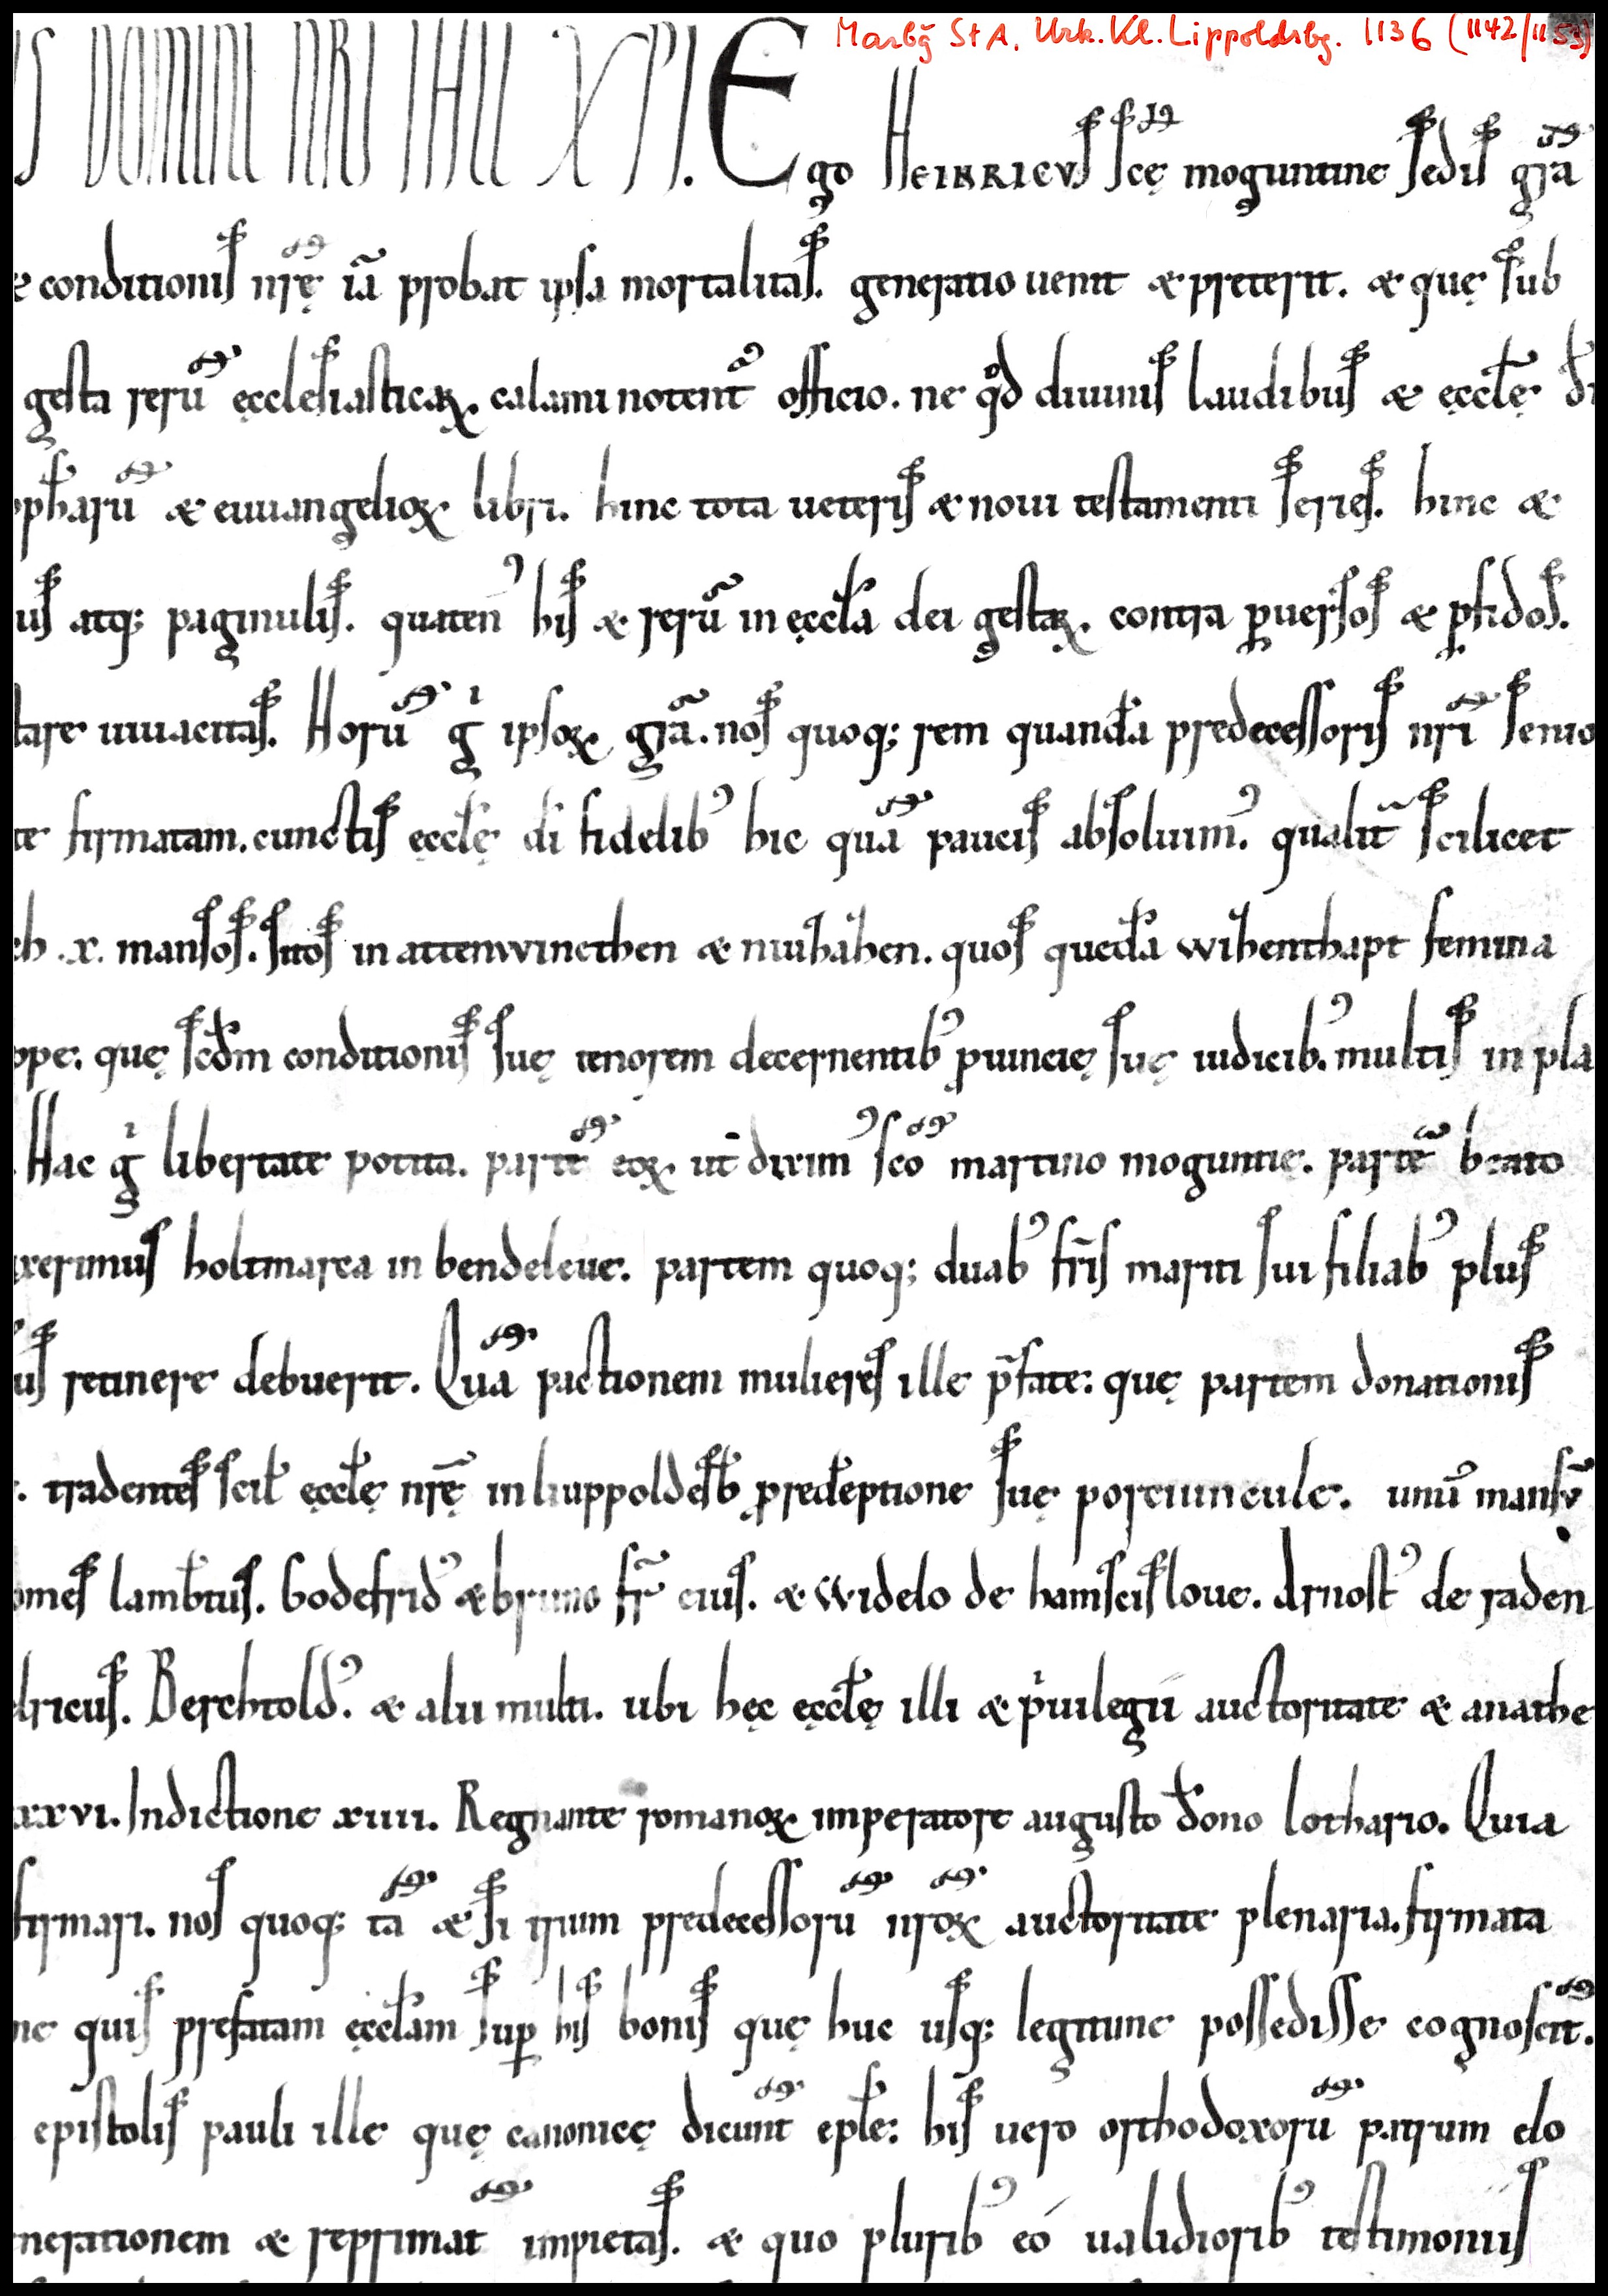 Marbg StA, Urk. Kl. Lippoldsbg. 1136 (1142/1153)
US DOMINI NRI IHU XPI. Ego HEINRICVS sce̜ moguntine sedis gr̃a
& conditionis nr̃e̜ iā probat ipsa mortalitas. generatio uenit & preterit. & que̜ sub
gesta rerū e̜cclesiasticaꝝ calami notent᷑ officio. ne qd̊ diuinis laudibus & e̜ccłe̜ di
ph̄arū & euuangelioꝝ libri. hinc tota ueteris & noui testamenti series. hinc &
us atq; paginulis. quaten᾽ his & rerū in e̜ccła dei gestaꝝ contra ꝑuersos & ꝑfidos.
tare uiuacitas. Horū gͥ ipsoꝝ gr̃a. nos quoq; rem quandā predecessoris nr̃i senio
te firmatam. cunctis e̜ccłe̜ di fidelib᾽ hic quā paucis absoluim᾽. qualit̃ scilicet
ch .x. mansos. sitos in attenwincthen & niuhahen. quos quedā wihenthapt femina
ppe. que̜ scd̄m conditionis sue̜ tenorem decernentib᾽ ꝓuincie̜ sue̜ iudicib᾽. multis in pla
. Hac gͥ libertate potita. partē eoꝝ ut̄ dixim᾽ sc̄o martino moguntie. partē beato
xerimus holtmarea in bendeleue. partem quoq; duab᾽ fr̄is mariti sui filiab᾽ plus
us retinere debuerit. Quā pactionem mulieres ille p̄fate: que̜ partem donationis
. tradentes scił e̜ccłe̜ nr̃e̜ in liuppoldesb̄ ꝓ redēptione sue̜ portiuncule. unū mansū
omes lamb̄tus. Godefrid᾽ & bruno fr̄ eius. & widelo de hamscisloue. Arnost᾽ de raden
lricus. Berchtold᾽. & alii multi. ubi he̜c e̜ccłe̜ illi & pͥuilegii auctoritate & anathe
xxvi. Indictione xiiii. Regnante romanoꝝ imperatore augusto dōno lothario. Quia
firmari. nos quoq; tā & si irium predecessorū nr̃oꝝ auctoritate plenaria. firmata
ne quis prefatam e̜ccłam suꝑ his bonis que̜ huc usq; legitime possedisse cognoscit᷑.
epistolis pauli ille que̜ canonice̜ dicunt᷑ epłe: his uero orthodoxorū patrum elo
nerationem & reprimat᷑ impietas. & quo plurib᾽ eó ualidiorib᾽ testimoniis